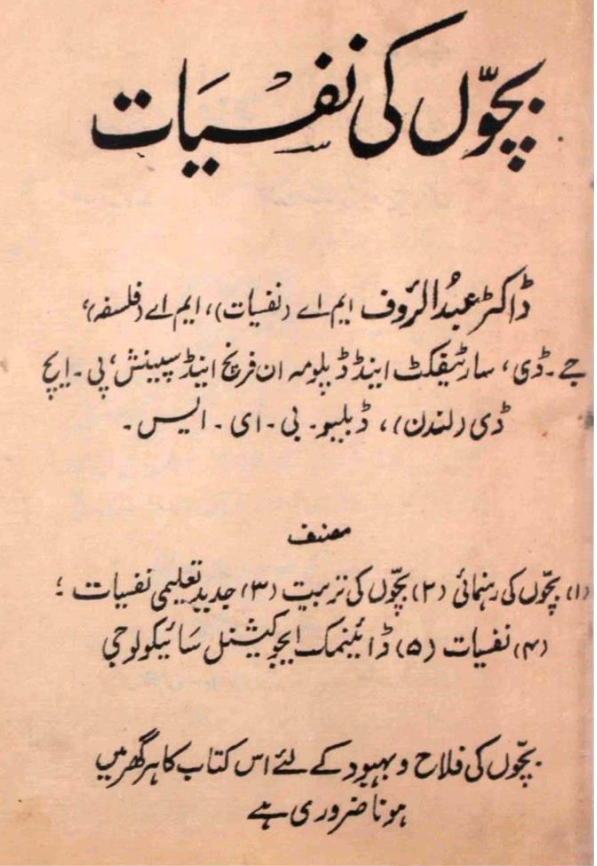 بچّوں کی نفسیات
ڈاکٹر عبدُ الرؤف ایم اے (نفسیات)، ایم اے (فلسفہ)،
جے۔ڈی، سارٹیفکٹ اینڈ ڈپلومہ ان فرنچ اینڈ سپینش، پی۔ایچ
ڈی (لندن)، ڈبلیو۔بی۔ای۔ایس۔
مصنف
(۱) بچّوں کی رہنمائی (۲) بچّوں کی تربیت (۳) جدید تعلیمی نفسیات ؛
(۴) نفسیات (۵) ڈائینمک ایجوکیشنل سائیکولوجی
بچّوں کی فلاح و بہبود کے لئے اس کتاب کا ہر گھر میں
ہونا ضروری ہے